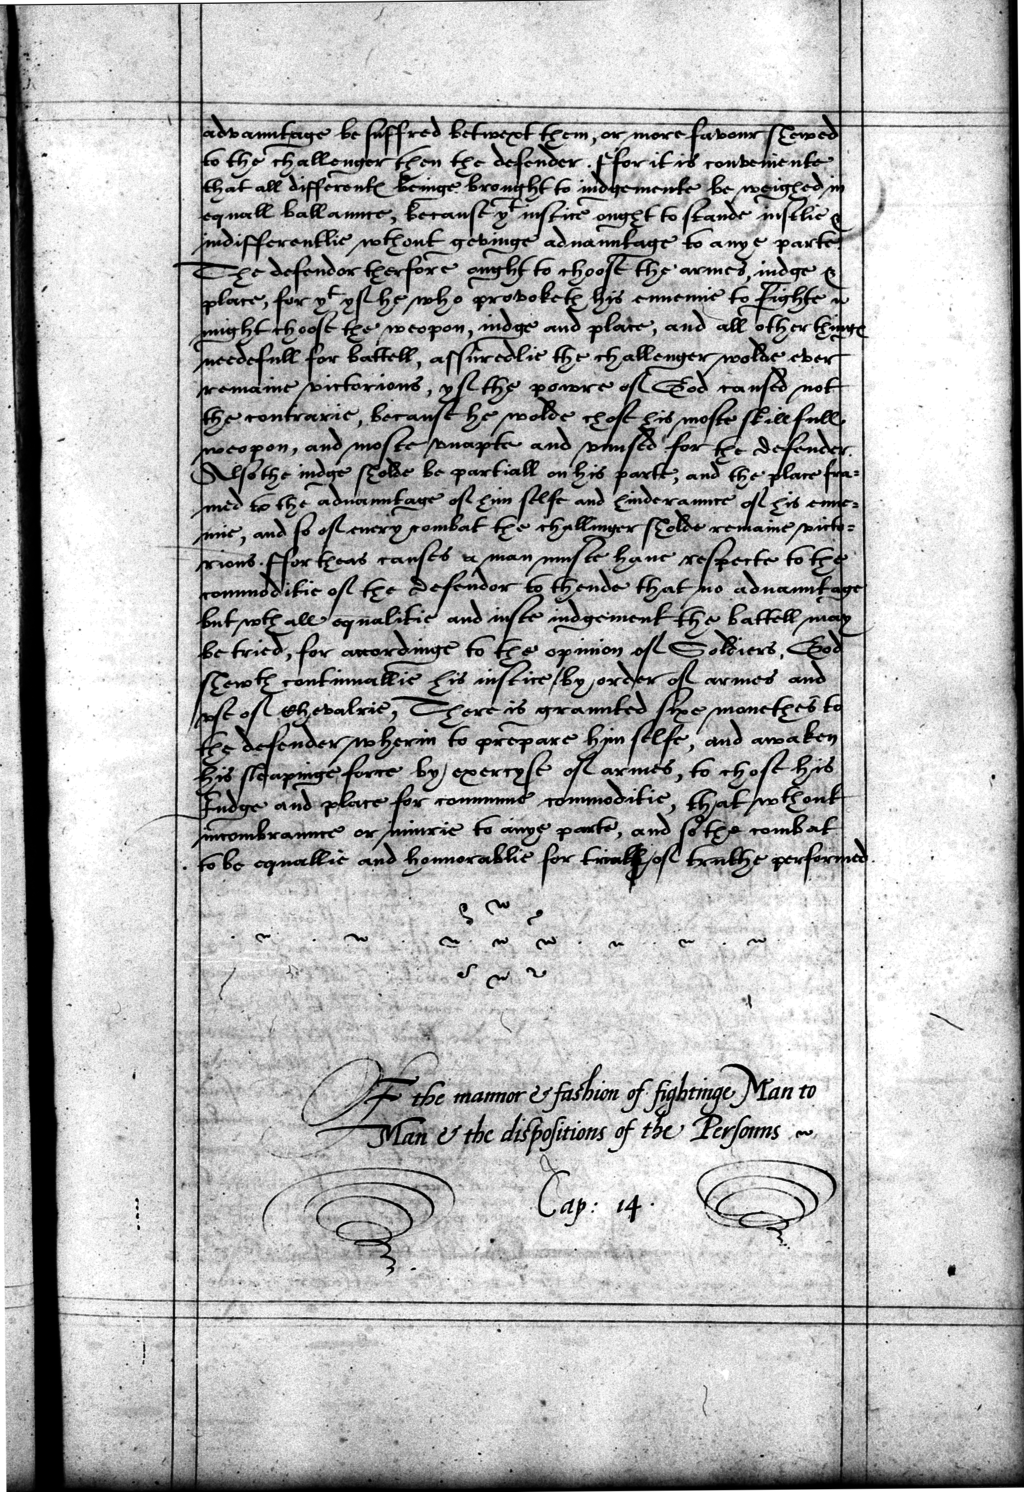 advanntage be suffred betwext them, or more favour shewed
to the challenger then the defender. ffor it is conveniente
that all differents beinge brought to iudgemente be weighed in
equall ballannce, because yt iustice ought to stande iustlie &
indifferentlie wthout gevinge aduanntage to anye parte
The defendor therfore ought to choose the armes, iudge &
place, for yt yf he who provoketh his ennemie to fighte
might choose the weopon, iudge and place, and all other things
needefull for battell, assuredlie the challenger wolde ever
remaine victorious, yf the powre of God caused not
the contrarie, because he wolde chose his moste skillfull
weopon, and moste vnapte and vnused for the defender.
Also the iudge sholde be partiall on his parte, and the place fra-
med to the aduanntage of him selfe and hinderannce of his enne-
mie, and so of euery combat the challinger sholde remaine victo-
rious. ffor theas causes a man muste haue respecte to the
commoditie of the defendor to thende that no aduanntage
but wth all equalitie and iuste iudgement the battell may
be tried, for accordinge to the opinion of Soldiers, God
shewth continuallie his iustice by order of armes and
vse of Chevalrie, There is graunted sixe monethes to
the defender wherin to prepare him selfe, and awaken
his sleapinge force by exercyse of armes, to chose his
Iudge and place for commune commoditie, that wthout
incombrannce or iniurie to anye parte, and so the combat
to be equallie and honnorablie for triall of truthe performed.
OF the mannor & fashion of fightinge Man to
Man & the dispositions of the Personns
Cap: 14.